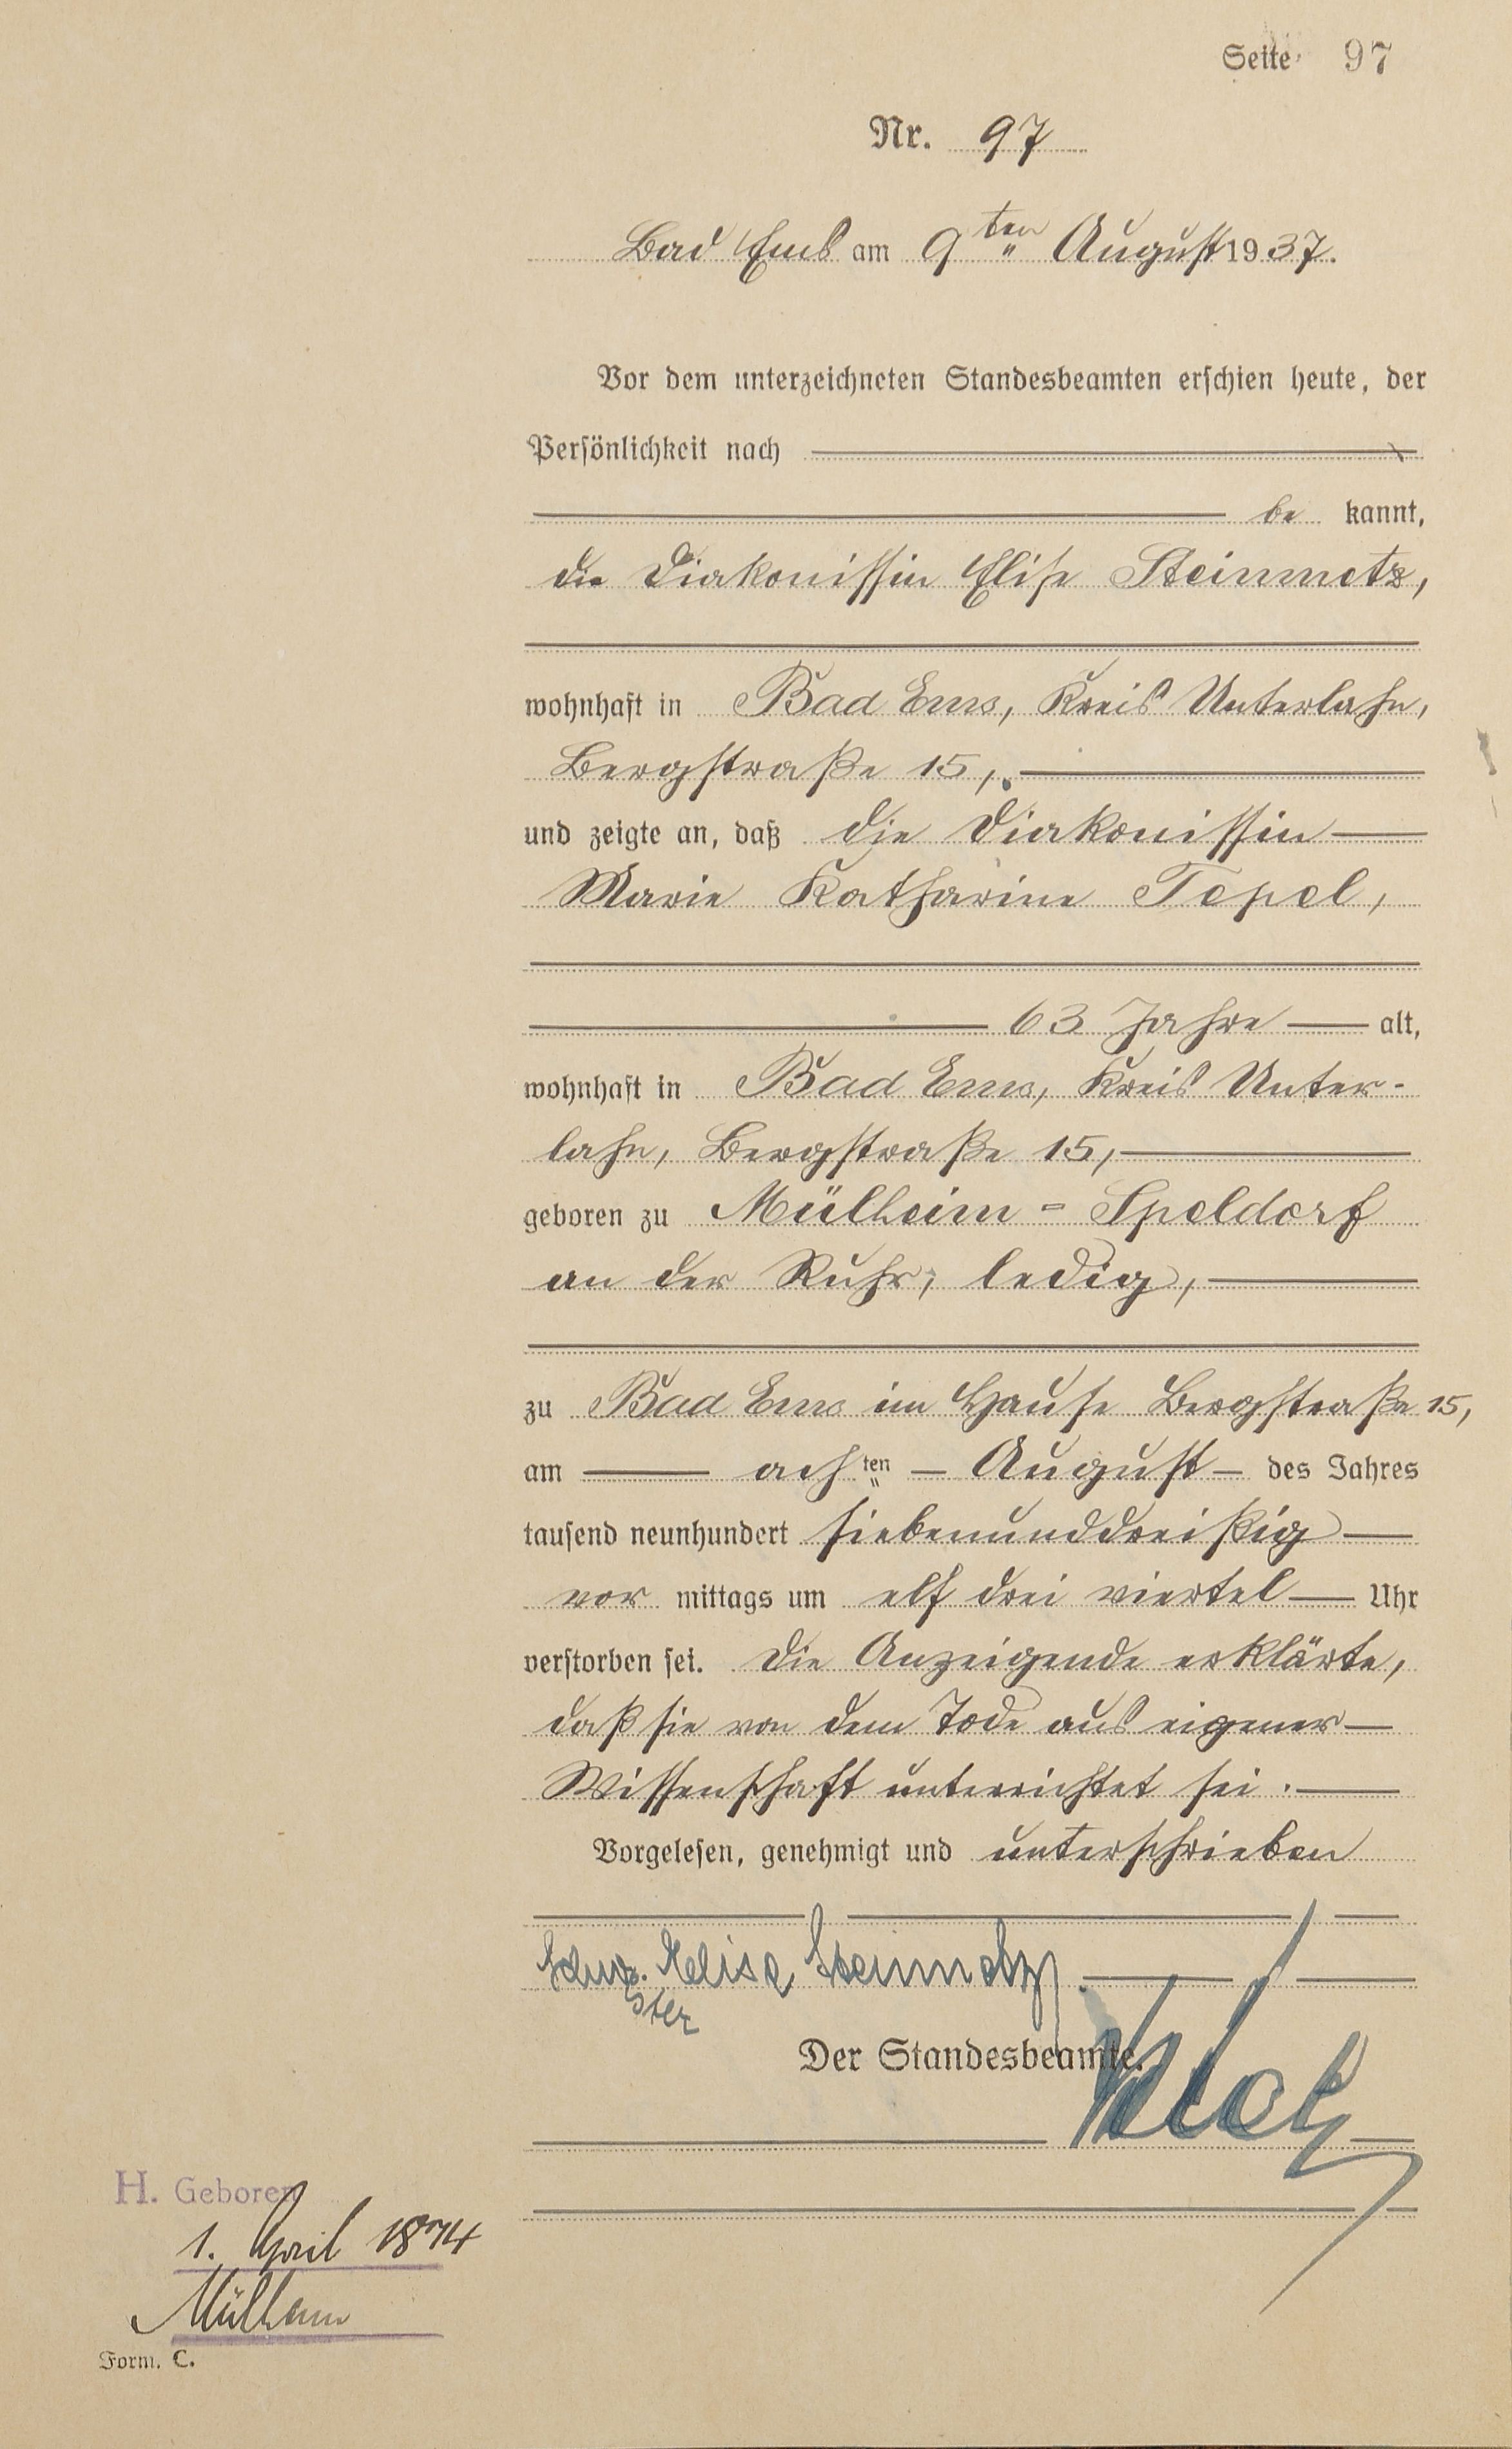 Seite 97
Nr. 97
Bad Ems am 9ten August 1937.
Vor dem unterzeichneten Standesbeamten erschien heute, der
Persönlichkeit nach
be kannt,
die Diakonissin Elise Steinmetz,
wohnhaft in Bad Ems, Kreis Unterlahn,
Bergstraße 15,
und zeigte an, daß die Diakonissin
Marie Katharine Tepel,
63 Jahre alt,
wohnhaft in Bad Ems, Kreis Unter-
lahn, Bergstraße 15,
geboren zu Mülheim-Speldorf
an der Ruhr, ledig,
zu Bad Ems im Hause Bergstraße 15,
am achten August des Jahres
tausend neunhundert siebenunddreißig
vor mittags um elf drei viertel Uhr
verstorben sei. Die Anzeigende erklärte,
daß sie von dem Tode aus eigener
Wissenschaft unterrichtet sei.
Vorgelesen, genehmigt und unterschrieben
Elise Steinmetz
Der Standesbeamte.
H. Geboren
1. April 1874
Mülheim
Form. C.